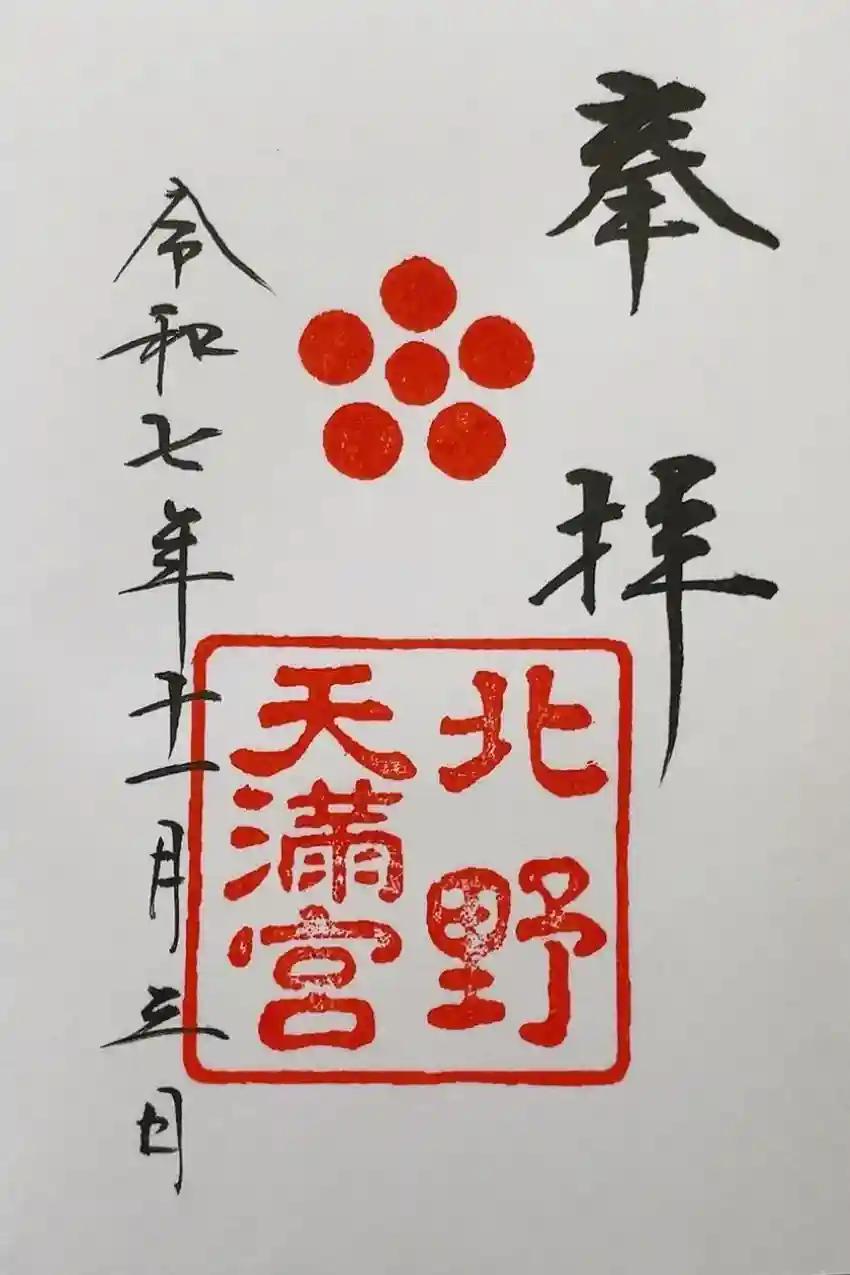 奉拝
北野
天満宮
令和七年十一月三日